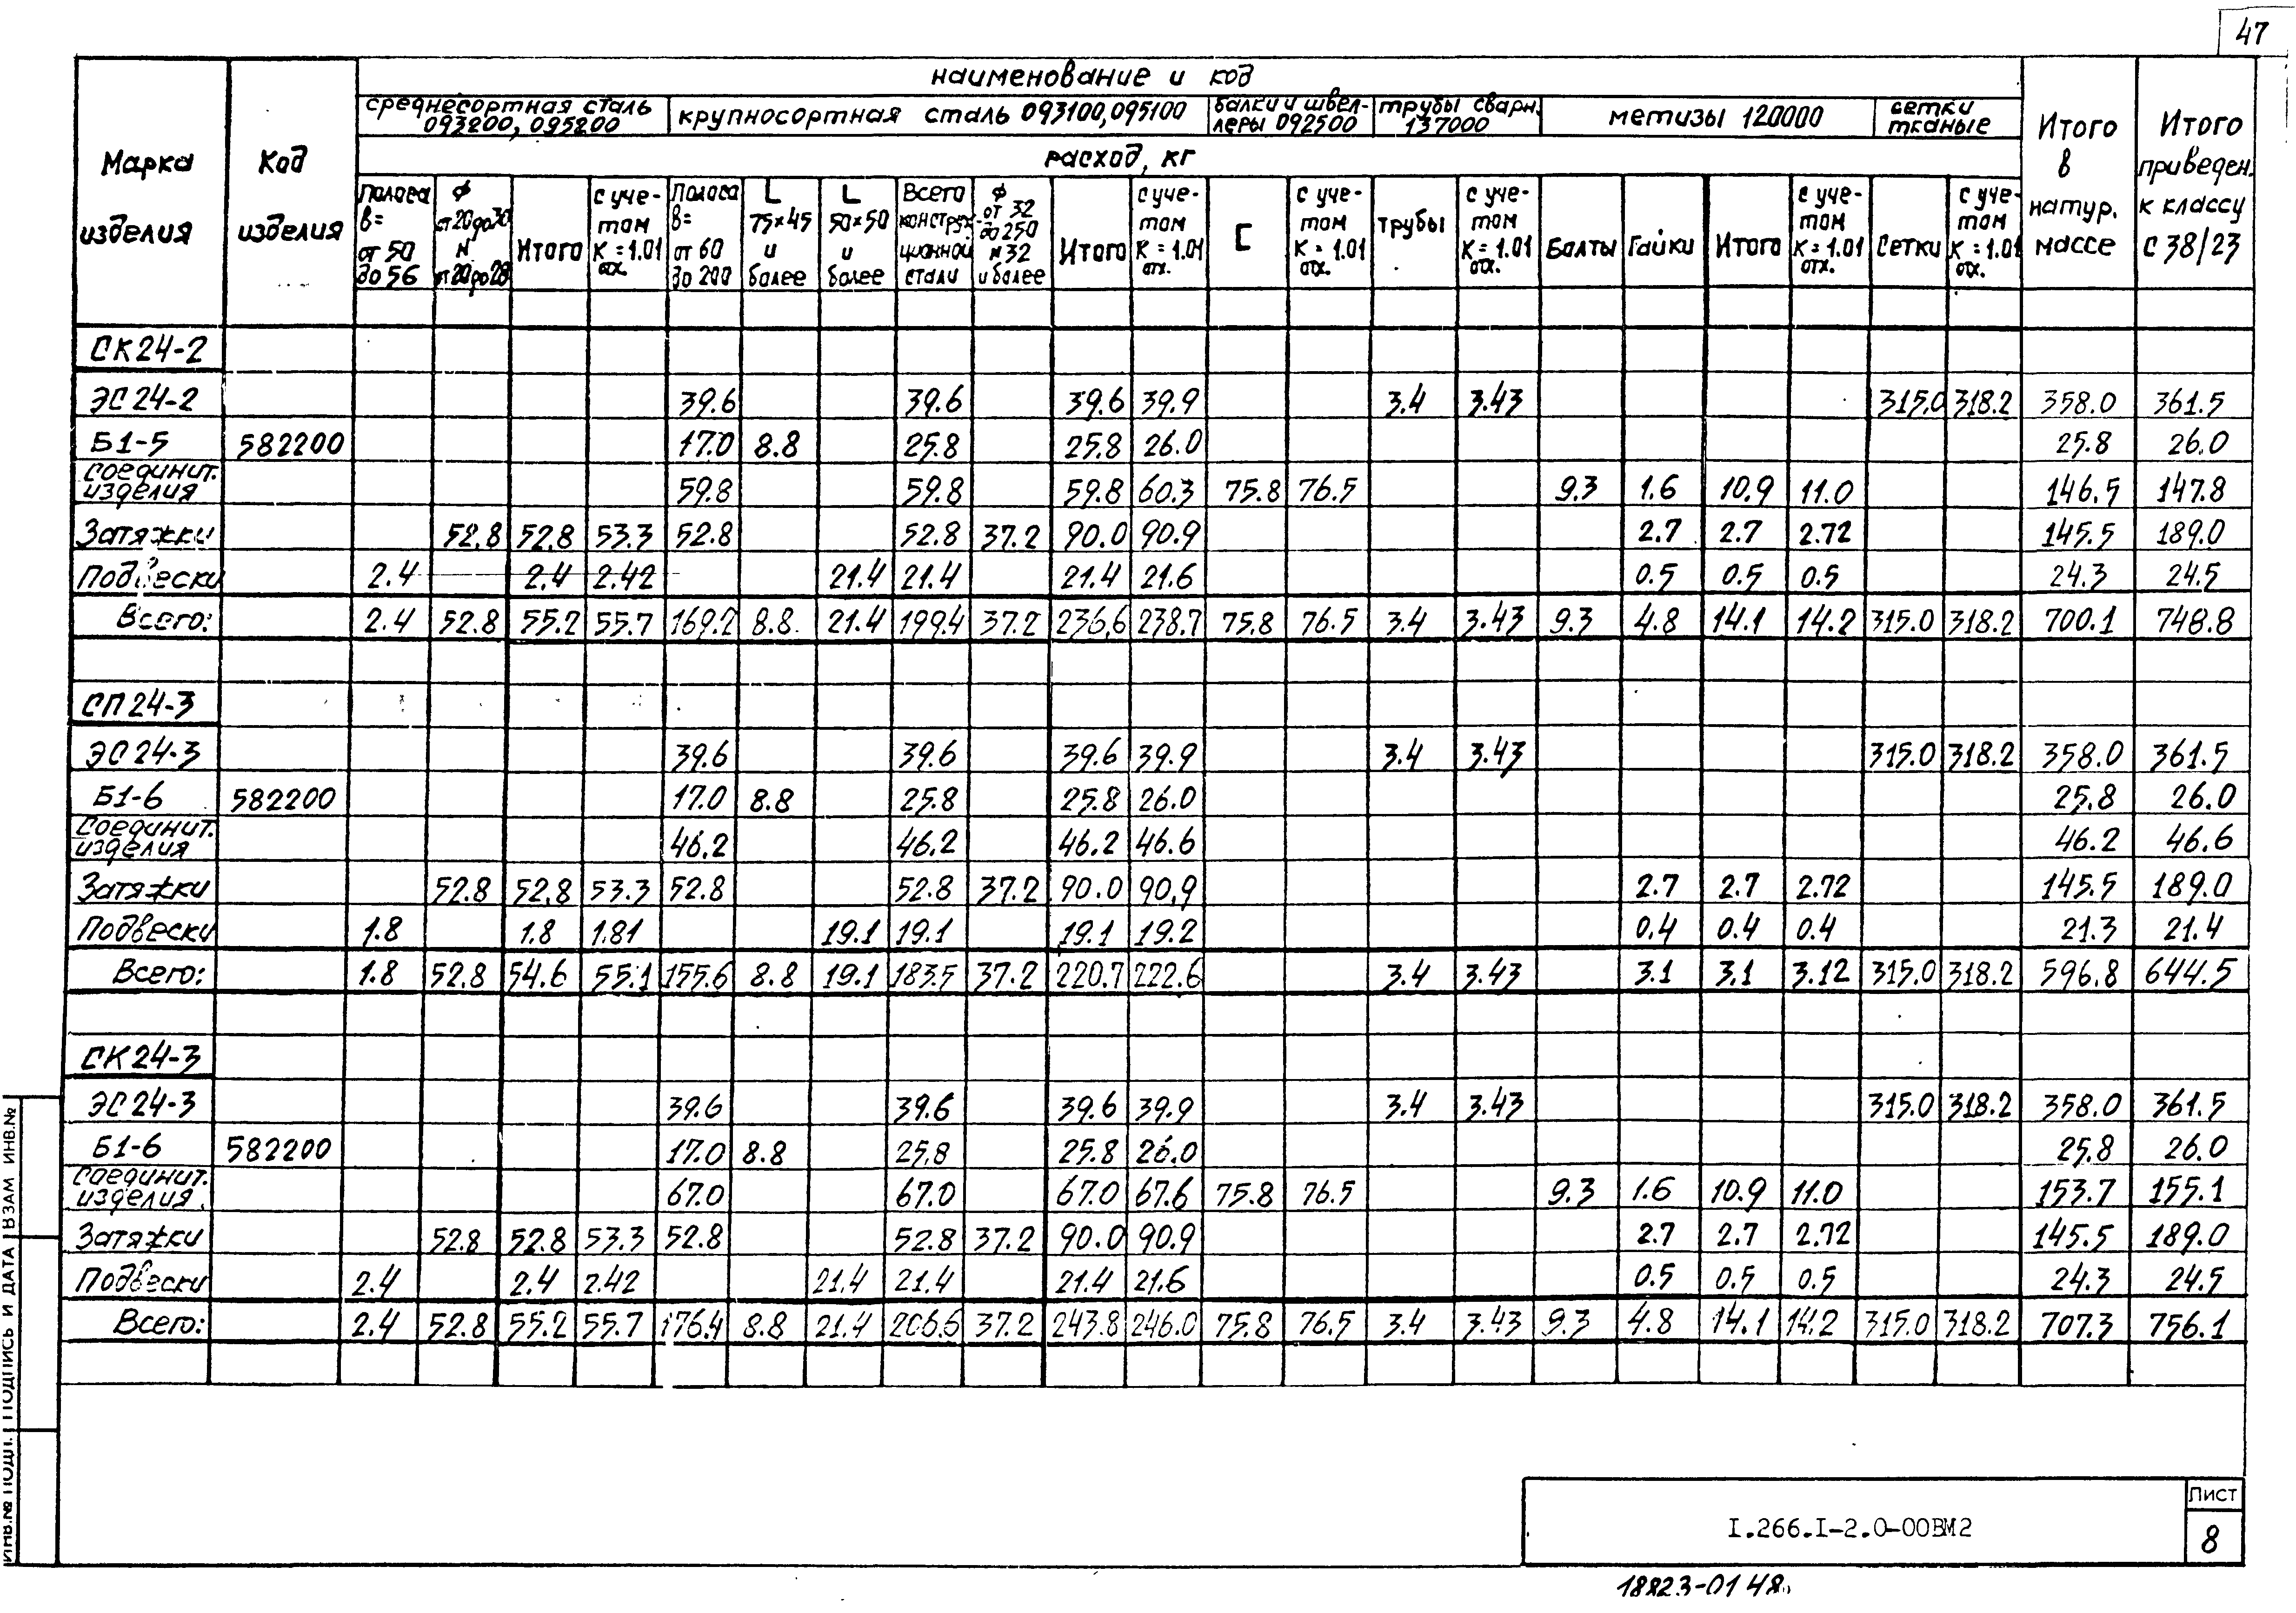 47
наименование и код
Марка изделия
Код изделия
среднесортная сталь 093200, 095200
крупносортная сталь 093100, 095100
балки и швеллеры 092500
трубы сварн. 137000
метизы 120000
сетки тканые
Итого в натур. массе
Итого приведен. к классу С 38/23
расход, кг
Полоса В= от 50 до 56
Ф от 20 до 30 N от 20 до 28
Итого
с учетом К = 1.01 отх.
Полоса В= от 60 до 200
L 75×45 и более
L 50×50 и более
Всего конструкционной стали
Ф от 32 до 250 N 32 и более
Итого
с учетом К = 1.01 отх.
[
с учетом К = 1.01 отх.
трубы
с учетом К = 1.01 отх.
Болты
Гайки
Итого
с учетом К = 1.01 отх.
Сетки
с учетом К = 1.01 отх.
СК24-2
ЭС24-2 39.6 39.6 39.6 39.9 3.4 3.43 315.0 318.2 358.0 361.5
Б1-5 582200 17.0 8.8 25.8 25.8 26.0 25.8 26.0
соединит. изделия 59.8 59.8 59.8 60.3 75.8 76.5 9.3 1.6 10.9 11.0 146.5 147.8
Затяжки 52.8 52.8 53.3 52.8 52.8 37.2 90.0 90.9 2.7 2.7 2.72 145.5 189.0
Подвески 2.4 2.4 2.42 21.4 21.4 21.4 21.6 0.5 0.5 0.5 24.3 24.5
Всего: 2.4 52.8 55.2 55.7 169.2 8.8 21.4 199.4 37.2 236.6 238.7 75.8 76.5 3.4 3.43 9.3 4.8 14.1 14.2 315.0 318.2 700.1 748.8
СП24-3
ЭС24-3 39.6 39.6 39.6 39.9 3.4 3.43 315.0 318.2 358.0 361.5
Б1-6 582200 17.0 8.8 25.8 25.8 26.0 25.8 26.0
Соединит. изделия 46.2 46.2 46.2 46.6 46.2 46.6
Затяжки 52.8 52.8 53.3 52.8 52.8 37.2 90.0 90.9 2.7 2.7 2.72 145.5 189.0
Подвески 1.8 1.8 1.81 19.1 19.1 19.1 19.2 0.4 0.4 0.4 21.3 21.4
Всего: 1.8 52.8 54.6 55.1 155.6 8.8 19.1 183.5 37.2 220.7 222.6 3.4 3.43 3.1 3.1 3.12 315.0 318.2 596.8 644.5
СК24-3
ЭС24-3 39.6 39.6 39.6 39.9 3.4 3.43 315.0 318.2 358.0 361.5
Б1-6 582200 17.0 8.8 25.8 25.8 26.0 25.8 26.0
Соединит. изделия 67.0 67.0 67.0 67.6 75.8 76.5 9.3 1.6 10.9 11.0 153.7 155.1
Затяжки 52.8 52.8 53.3 52.8 52.8 37.2 90.0 90.9 2.7 2.7 2.72 145.5 189.0
Подвески 2.4 2.4 2.42 21.4 21.4 21.4 21.6 0.5 0.5 0.5 24.3 24.5
Всего: 2.4 52.8 55.2 55.7 176.4 8.8 21.4 206.6 37.2 243.8 246.0 75.8 76.5 3.4 3.43 9.3 4.8 14.1 14.2 315.0 318.2 707.3 756.1
ИНВ.№ ПОДЛ. ПОДПИСЬ И ДАТА ВЗАМ ИНВ.№
I.266.I-2.0-00ВМ2
Лист
8
18823-01 48